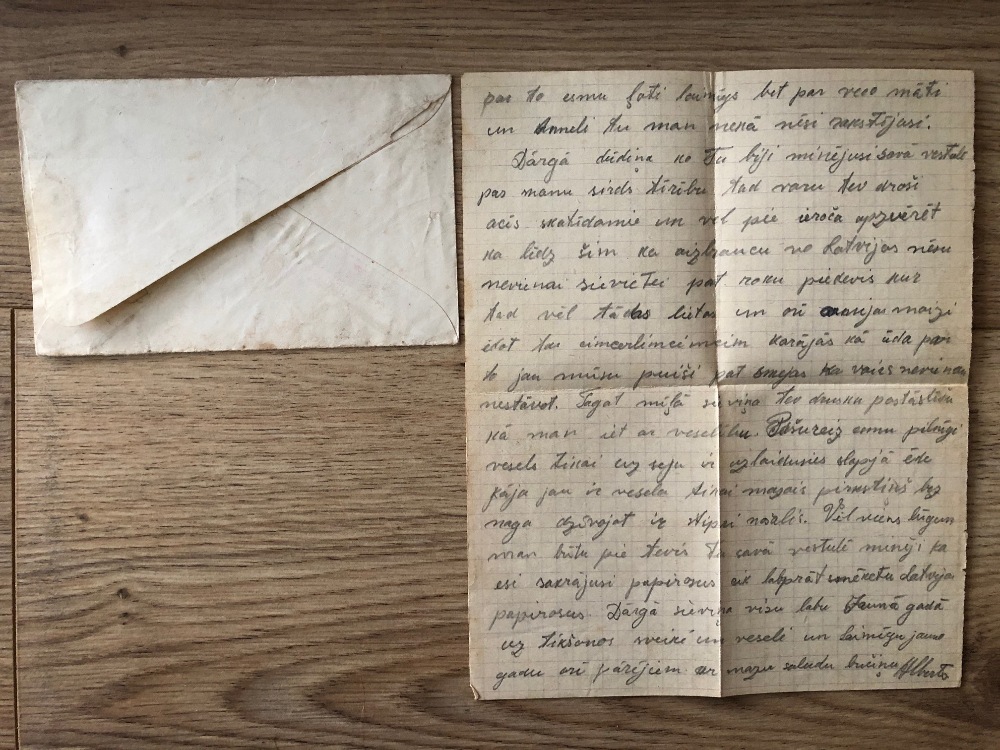 par to esmu ļoti laimīgs bet par veco māti
un Anneli tu man nekā nēsi rakstījusi.
Dārgā dūdiņa ko Tu biji minējusi savā vēstulē
par manu sirds tīrību tad varu tev droši
acīs skatīdamies un vēl pie ieroča apzvērēt
ka līdz šim ka aizbraucu no Latvijas nēsu
nevienai sievietei pat roku piedevis kur
tad vēl tādas lietas un arī maizi
ēdot karājās kā ūda par
to jau mūsu puiši pat smejas ka vairs neviena
nestāvot. Tagat mīļā sieviņa tev drusku pastāstīšu
kā man iet ar veselību. Pašureiz esmu pilnīgi
vesels tikai uz seju ir uzlaidusies slapjā ēde
kāja jau ir vesela tikai mazais pirkstiņš bez
naga dzīvojot ir stipri Vēl viens lūgums
man būtu pie tevis tu savā vēstulē minēji ka
esi sakrājusi papirosus cik labprāt smēķētu Latvijas
papirosus. Dārgā sieviņa visu labu Jaunā gadā
uz tikšanos sveiki un veseli un laimīgu jauno
gadu arī pārējiem ar mazu saldu bučiņu Alberts